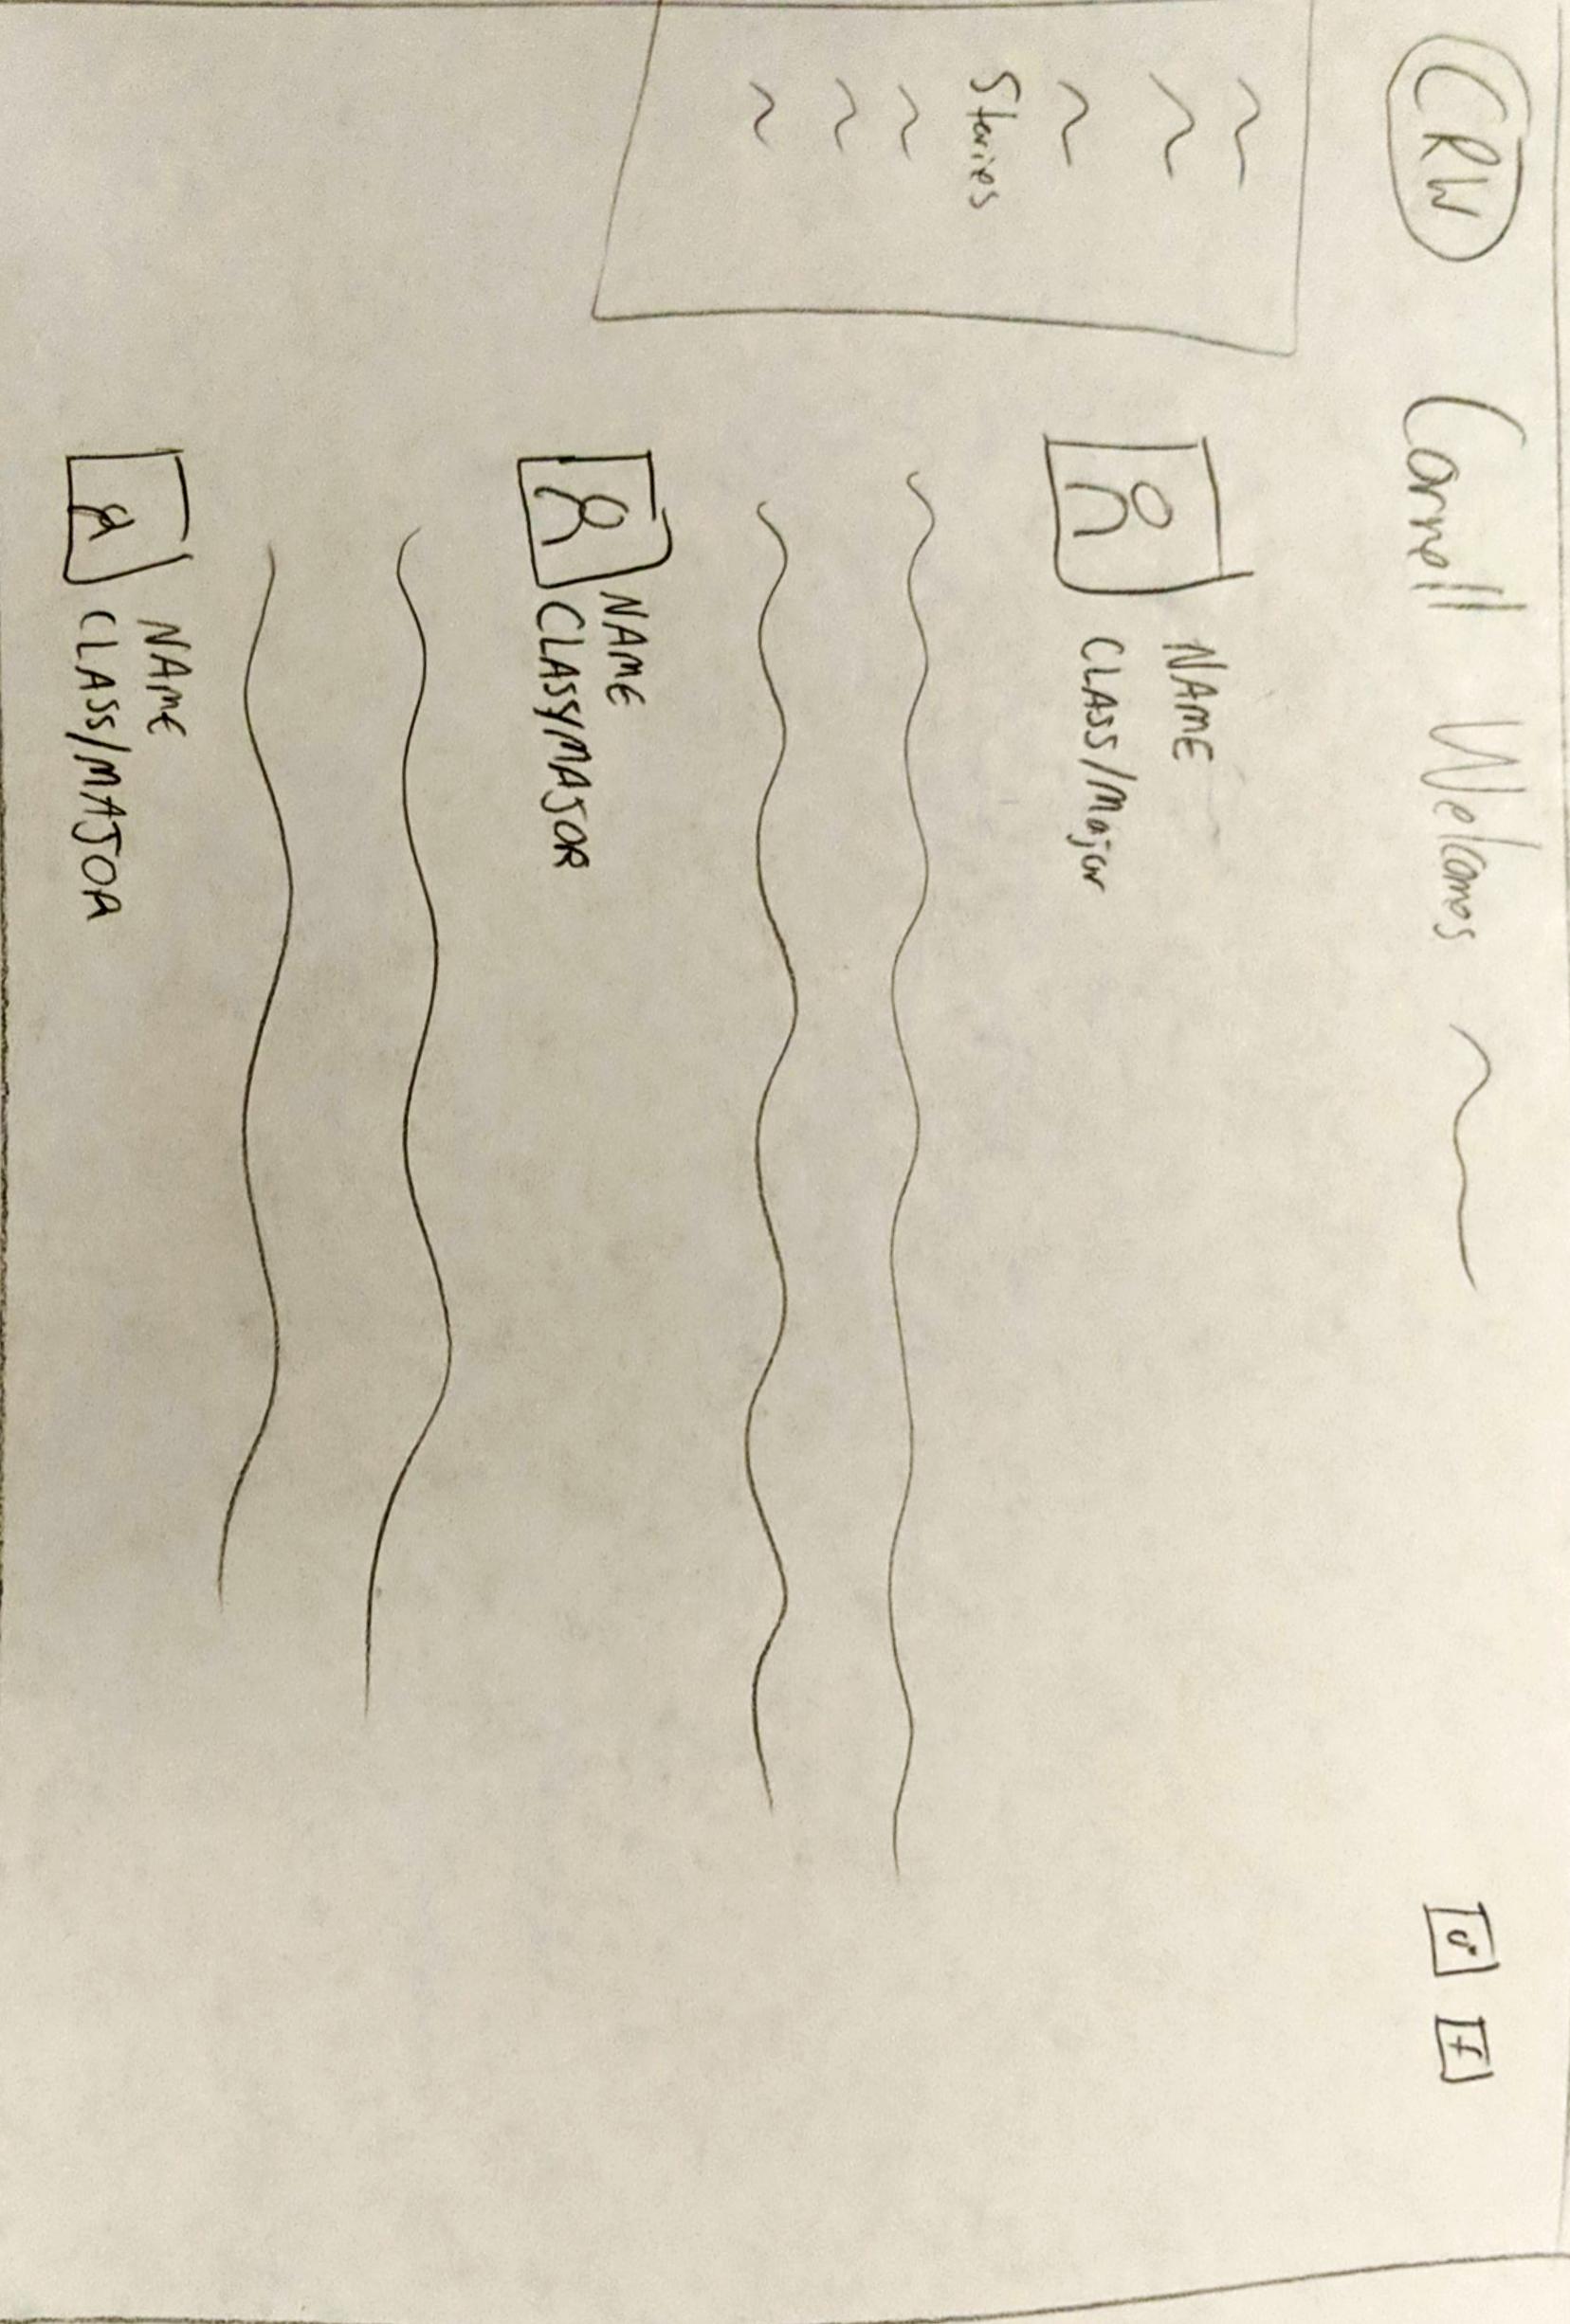 CRW Cornell Welcomes
Stories
NAME
CLASS/Major
NAME
CLASS/MAJOR
NAME
CLASS/MAJOR
f